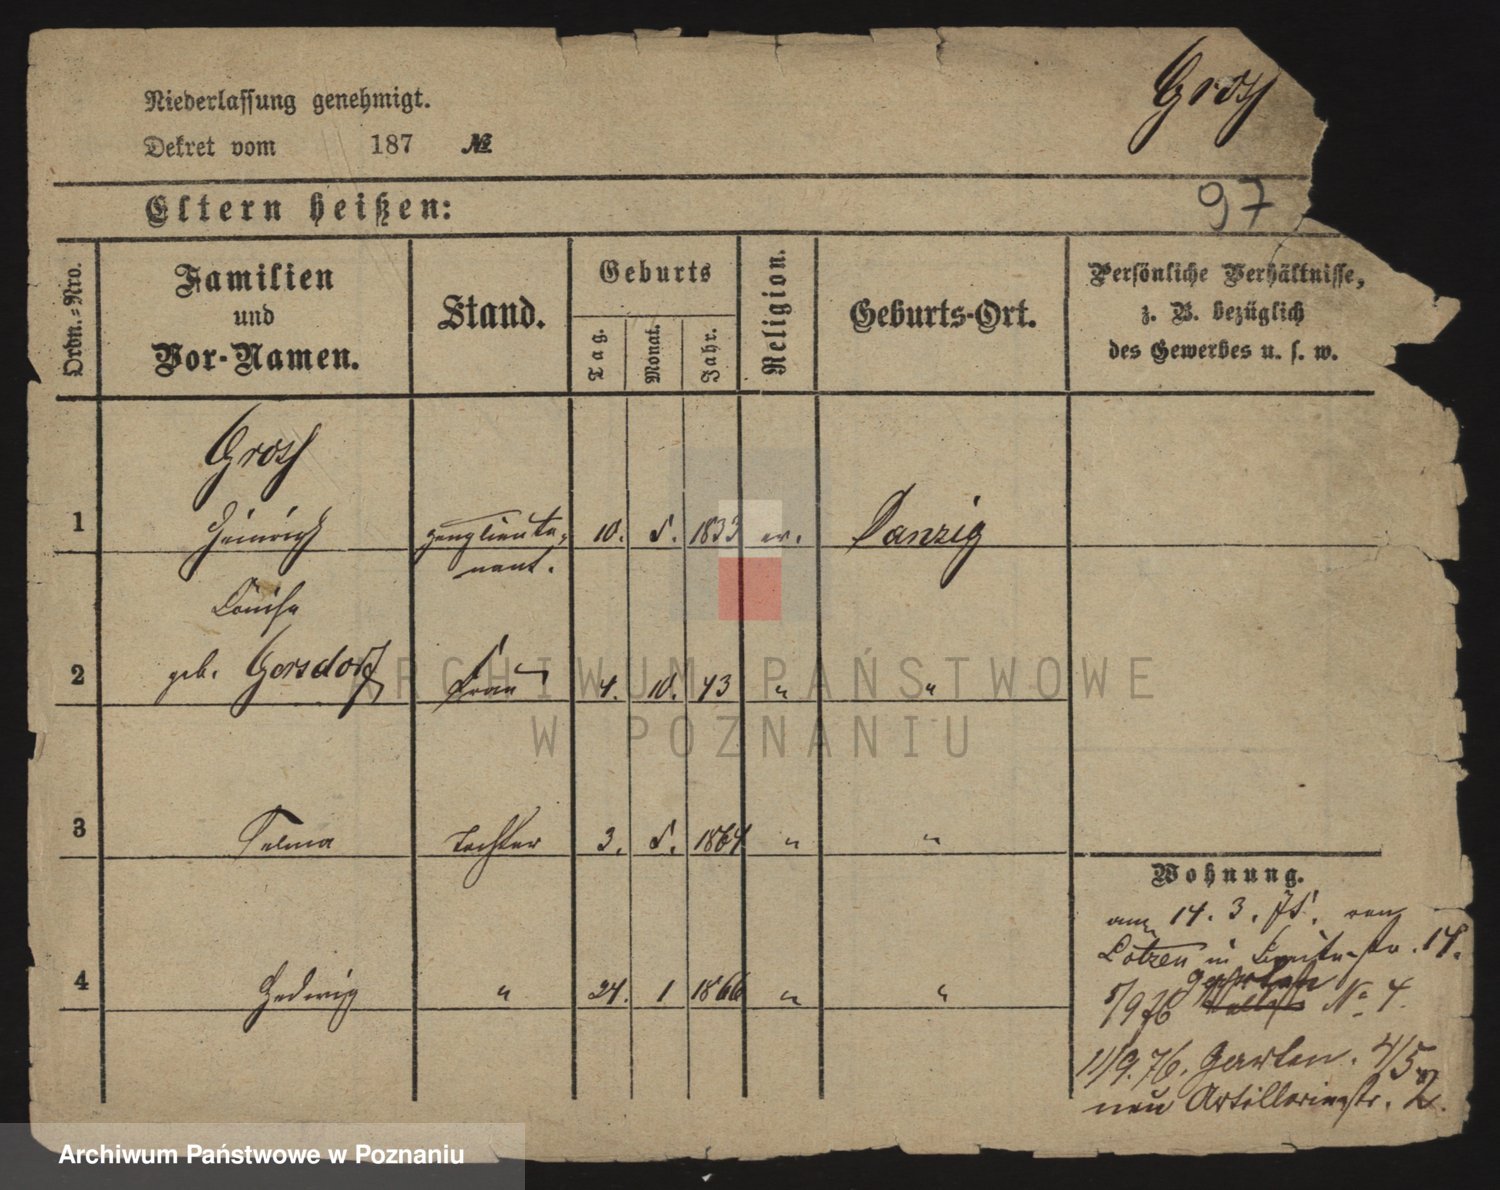 Niederlassung genehmigt.
Dekret vom 187 №
Grosz
97
Eltern heißen:
Ordn.-Nro.
Familien
und
Vor-Namen.
Stand.
Geburts
Tag.
Monat.
Jahr.
Religion.
Geburts-Ort.
Persönliche Verhältnisse,
z. B. bezüglich
des Gewerbes u. s. w.
Grosz
1 Heinrich 10. 5. 1833 ev. Danzig
nant.
Louise
2 geb. Gersdorf Frau 4. 10. 43 " "
3 Selma Tochter 3. 5. 1864 " "
4 Hedwig " 24. 1 1866 " "
Wohnung.
am 14. 3. 75. von
Lötzen in Breitestr. 14.
Garten
5/9 76 № 4.
11/9. 76. Garten. 4/5
neu Artilleriestr. 2.
ARCHIWUM PAŃSTWOWE
W POZNANIU
Archiwum Państwowe w Poznaniu